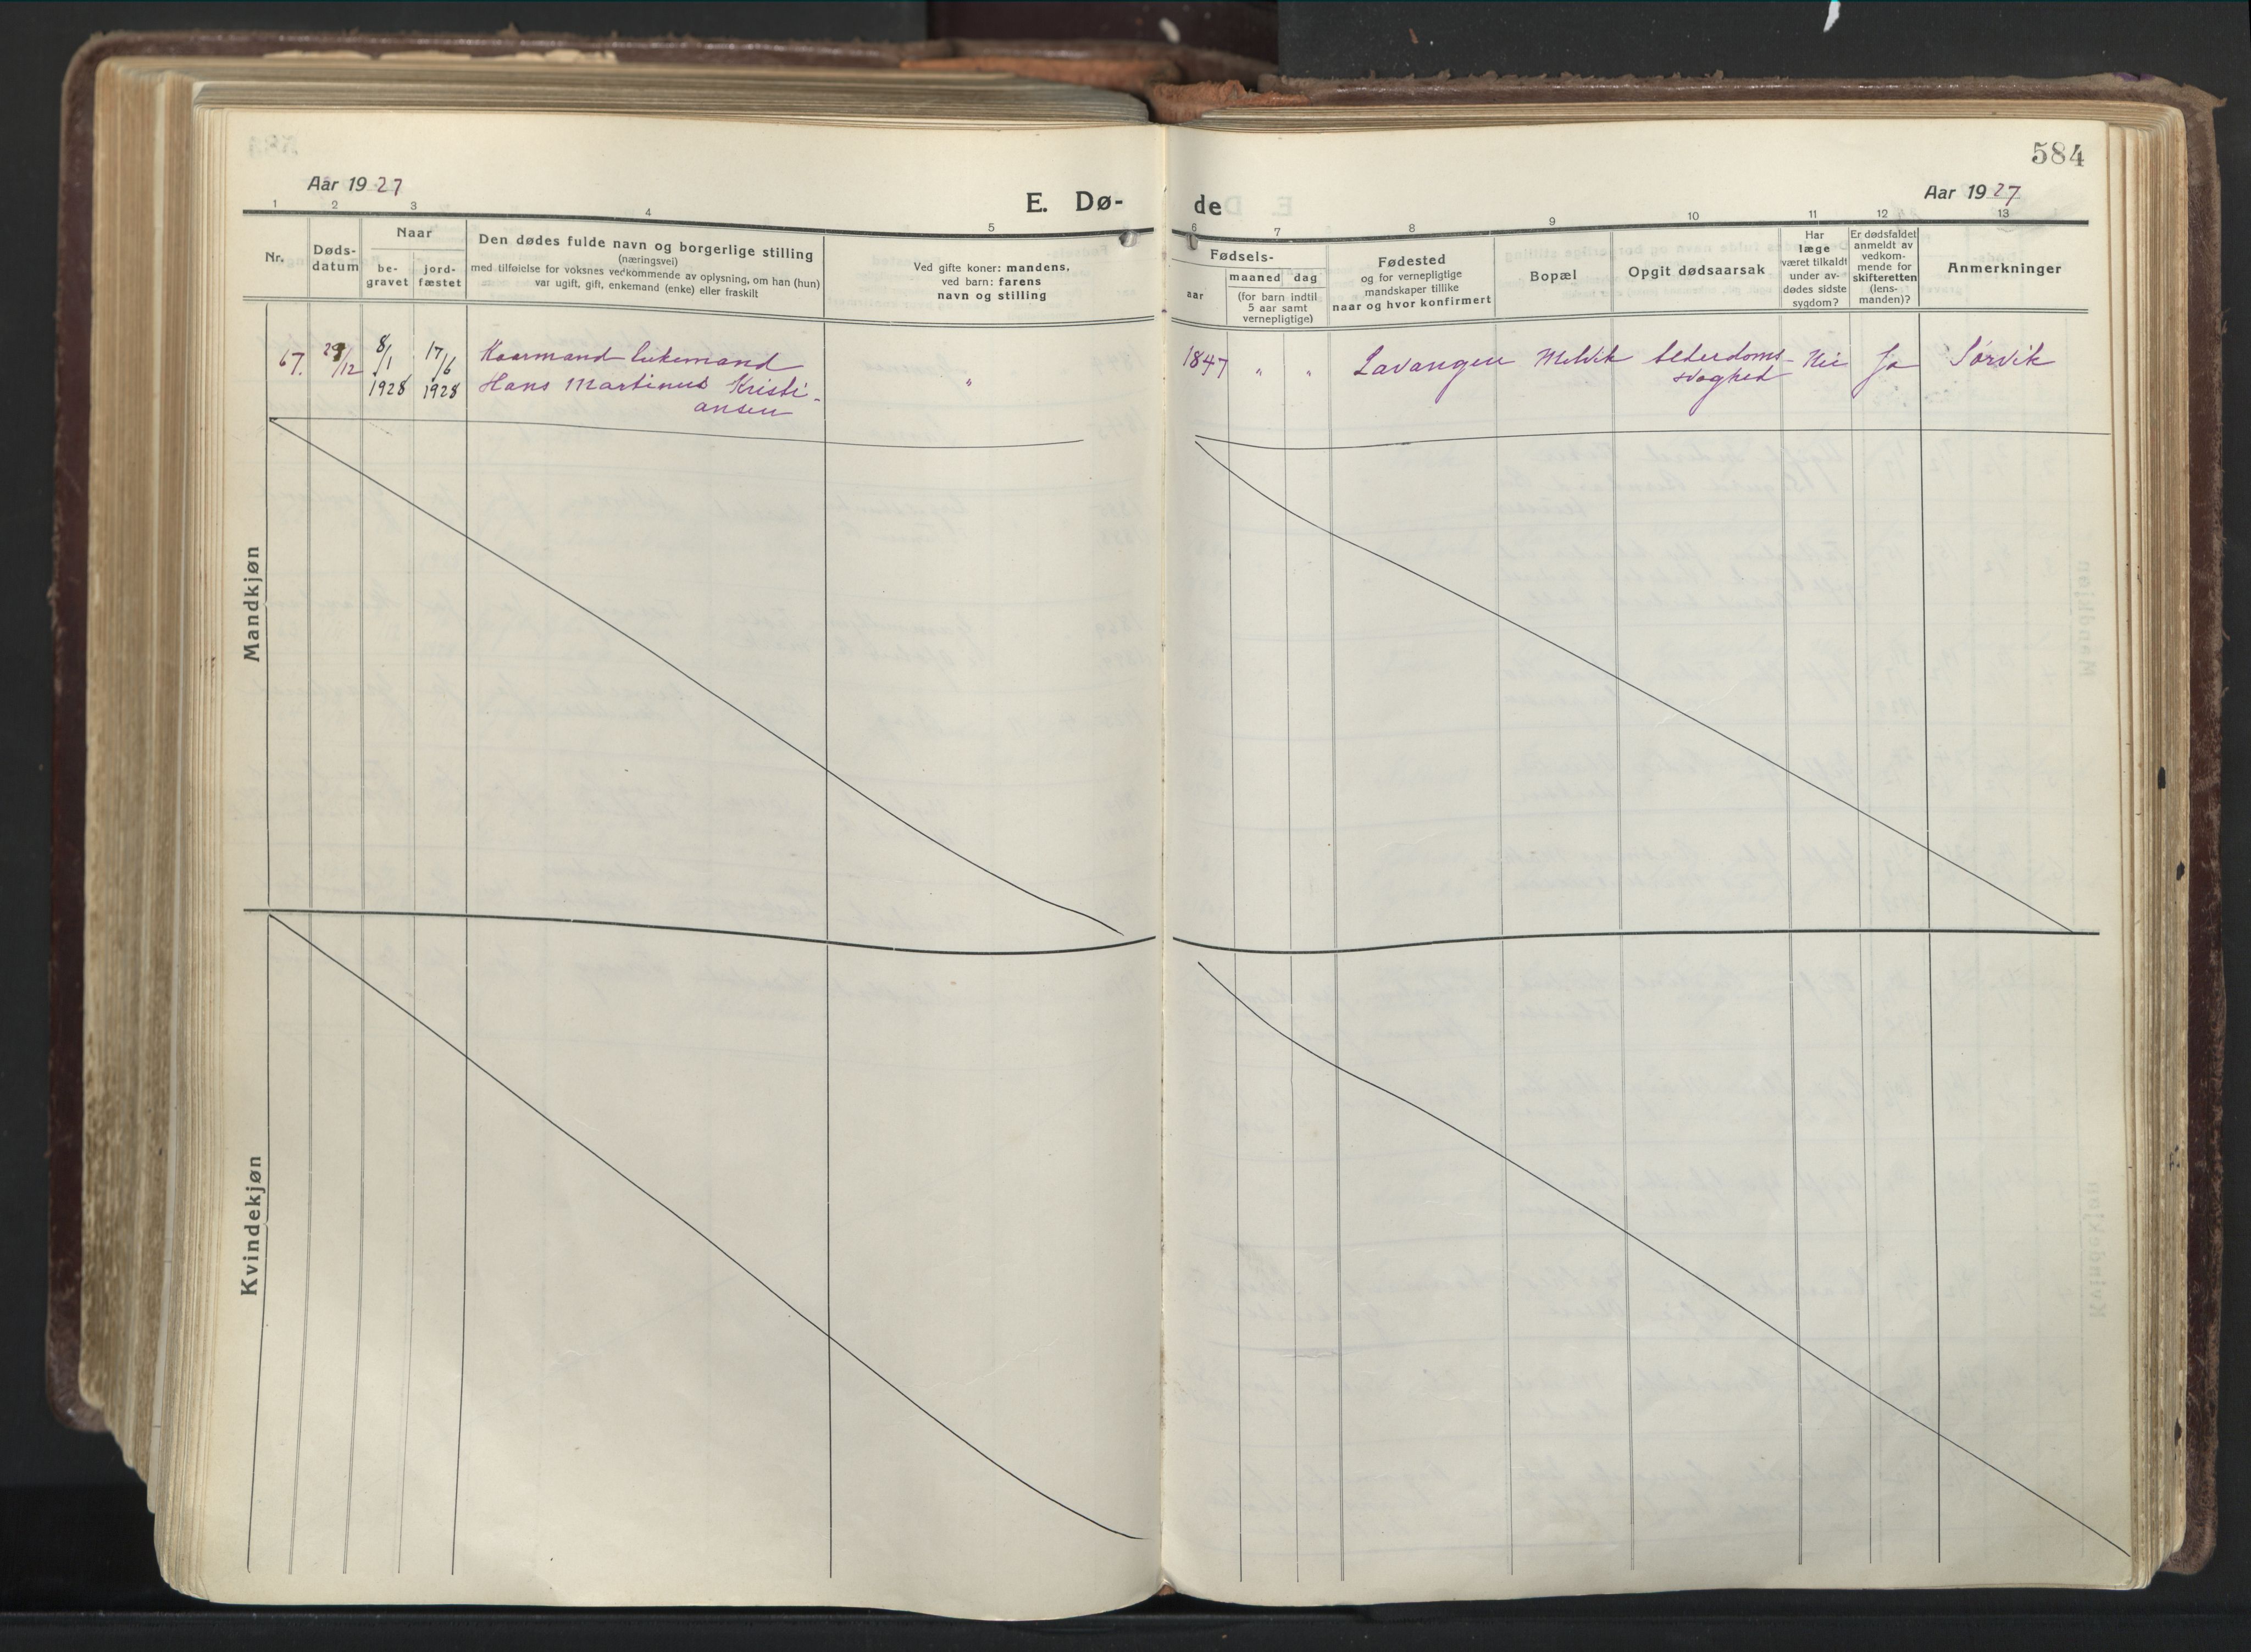 584
Aar 1927
E. Dø-
de
Aar 1927
1 2 3 4 5 6 7 8 9 10 11 12 13
Nr.
Døds-
datum
Naar
be-
gravet
jord-
fæstet
Den dødes fulde navn og borgerlige stilling
(næringsvei)
med tilføielse for voksnes vedkommende av oplysning, om han (hun)
var ugift, gift, enkemand (enke) eller fraskilt
Ved gifte koner: mandens,
ved barn: farens
navn og stilling
Fødsels-
aar
maaned dag
(for barn indtil
5 aar samt
vernepligtige)
Fødested
og for vernepligtige
mandskaper tillike
naar og hvor konfirmert
Bopæl
Opgit dødsaarsak
Har
læge
været tilkaldt
under av-
dødes sidste
sygdom?
Er dødsfaldet
anmeldt av
vedkom-
mende for
skifteretten
(lens-
manden)?
Anmerkninger
67. 29/12 8/1 17/6 Kaarmand Enkemand
1928 1928 Hans Martinus Kristi-
ansen
"
1847 " " Lavangen Melvik Alderdoms- Nei Ja Sørvik
svaghed
Mandkjøn
Kvindekjøn